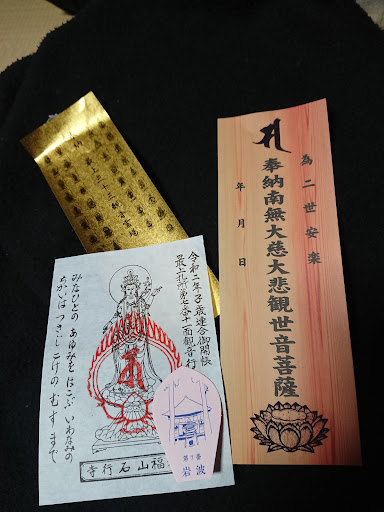 最上三十三観音霊場
為二世安楽
奉納南無大慈大悲観世音菩薩
年月日
令和二年子歳連合御開帳
最上札所第七番十一面観音
みなひとの あゆみをはこぶ いわなみの
ちかいはつきじ こけのむすまで
福山石行寺
第7番
岩波